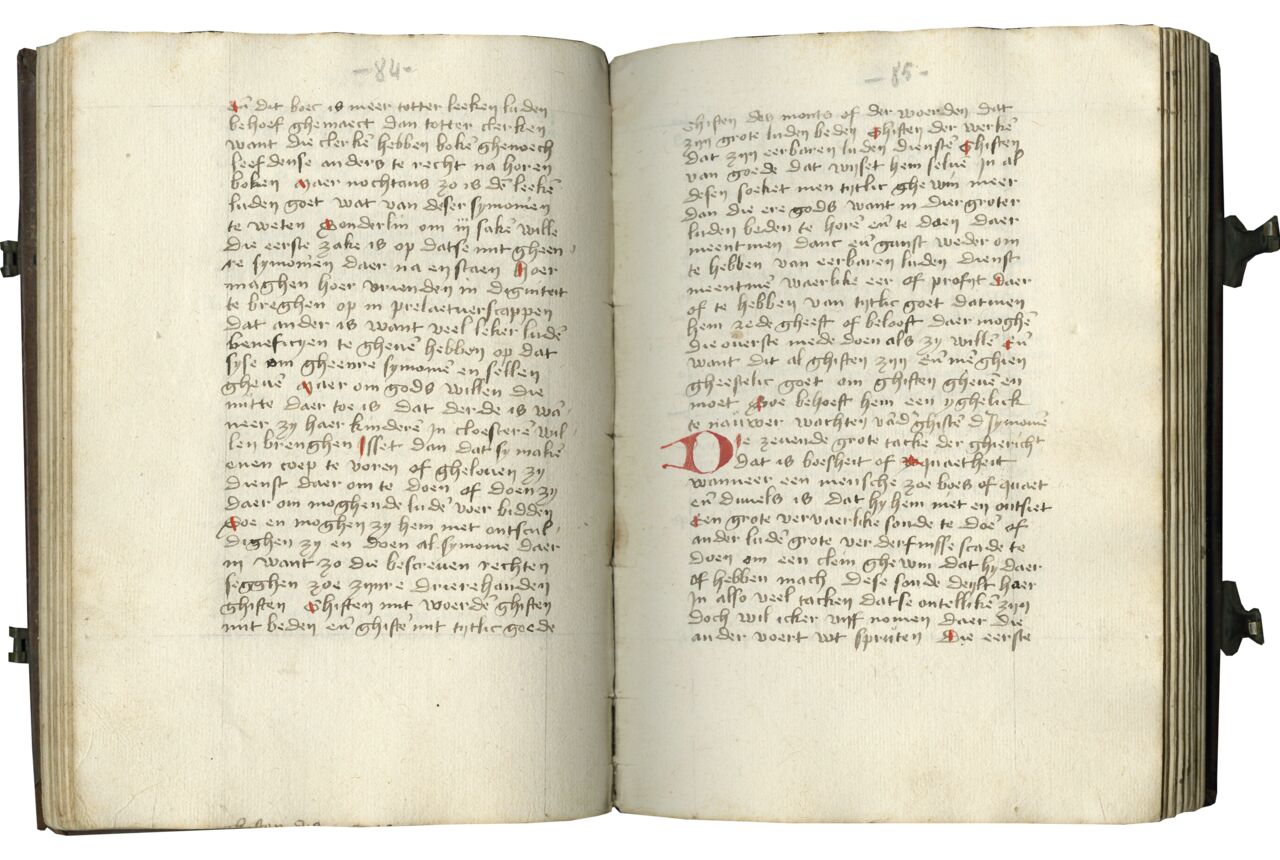 -84-
eñ dit boec is meer totter leeken luden
behoef ghemaect dan totter clercken
want die clerkē hebben bokē ghenoech
leef dense anders te recht na horen
boken Maer nochtans zo is dē leekē
luden goet wat van deser symonien
te weten Sonderlin om iij sakē wille
die eerste zake is op datse mit gheen
re symonien daer na en staen Hoer
maghen hoer vrienden in digniteit
te breghen op in prelaetuerscappen
dat ander is want veel leker ludē
beneficyen te gheuē hebben op dat
syse om gheenre symonie en sellen
gheuē Maer om gods willen die
nutte daer toe is dat derde is wā
neer zy haer kindere in cloesterē wil
len brenghen Isset dan dat sy makē
enen coep te voren of ghelouen zy
dienst daer om te doen of doen zy
daer om moghende ludē voer bidden
Zoe en moghen zy hem niet ontscul
dighen zy en doen al symonie daer
in want zo die bescreuen rechten
segghen zoe zynre drierehanden
ghiften Ghiften mit woerdē ghiften
mit beden eñ ghiftē mit tytlic goede
-85-
Ghiften des monts of der woerden dat
zyn grote luden beden Ghiften der werkē
dat zyn eerbaren luden dienste Ghiften
van goede dat wyset hem selue In al
desen soeket men tytlic ghewin meer
dan die ere gods want in dier groter
luden beden te horē eñ te doen daer
meentmen danc eñ gunst weder om
te hebben van eerbaren luden dienst
meentmē waerlike eer of profyt Daer
of te hebben van tytlic goet datmen
hem rede gheeft of belooft daer moghē
die ouerste mede doen als zy willē Eñ
want dit al ghiften zyn eñ mē ghien
gheestelic goet om ghiften gheuē en
moet Zoe behoeft hem een yghelick
te nauwer wachten vād' ghiftē d' symoniē
Die zeuende grote tacke der ghiericht
dat is boesheit of quaetheit
wanneer een mensche zoe boes of quaet
eñ duuels is dat hy hem niet en ontsiet
Een grote vervaerlike sonde te doē of
ander ludē grote verderfnisse scade te
doen om een clein ghewin dat hy daer
of hebben mach Dese sonde deylt haer
In also veel tacken datse ontellikē zyn
doch wil icker vyff nomen daer die
ander voert wt spruten Die eerste